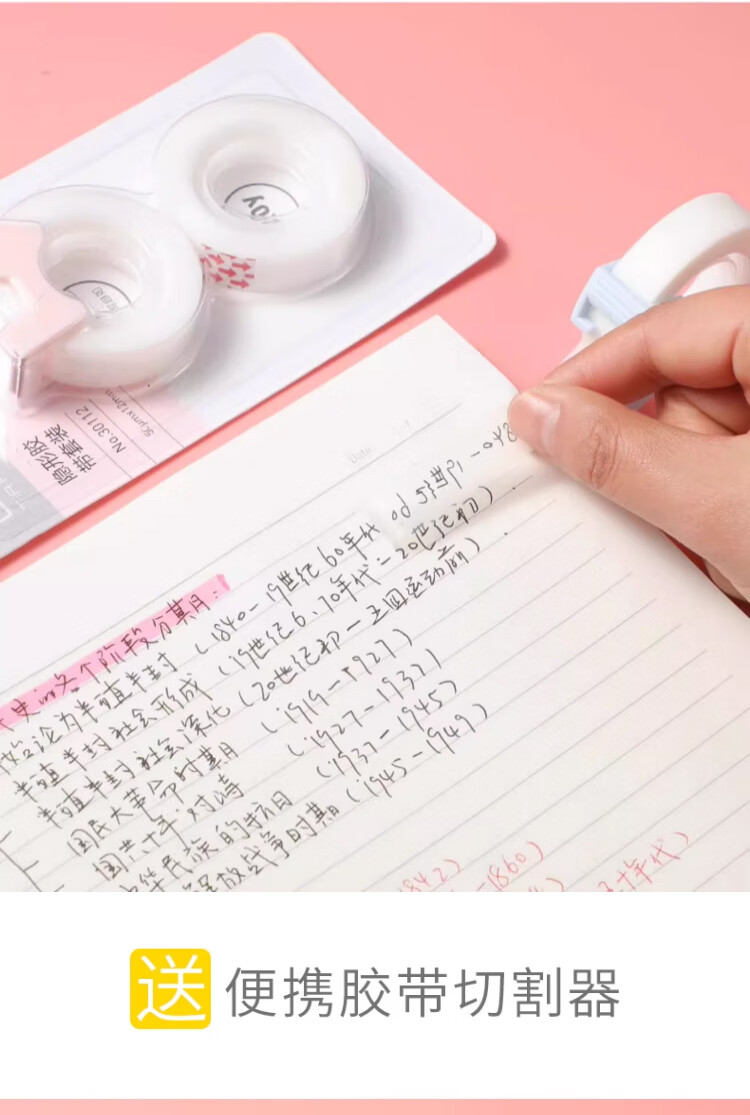 joy
No.30112
50μmx12mm
隐形胶
带套装
Date
史的各个阶段分期月:
始沦为半殖半封 (1840-19世纪60年代
半殖半封社会形成 (19世纪6.70年代-20世纪初)
半殖半封社会深化 (20世纪初-五四运动前)
国民大革命时期 (1919-1927)
国共十年对峙 (1927-1937)
中华民族的抗日 (1937-1945)
解放战争时期 (1945-1949)
1842)
-1860)
年代)
送 便携胶带切割器